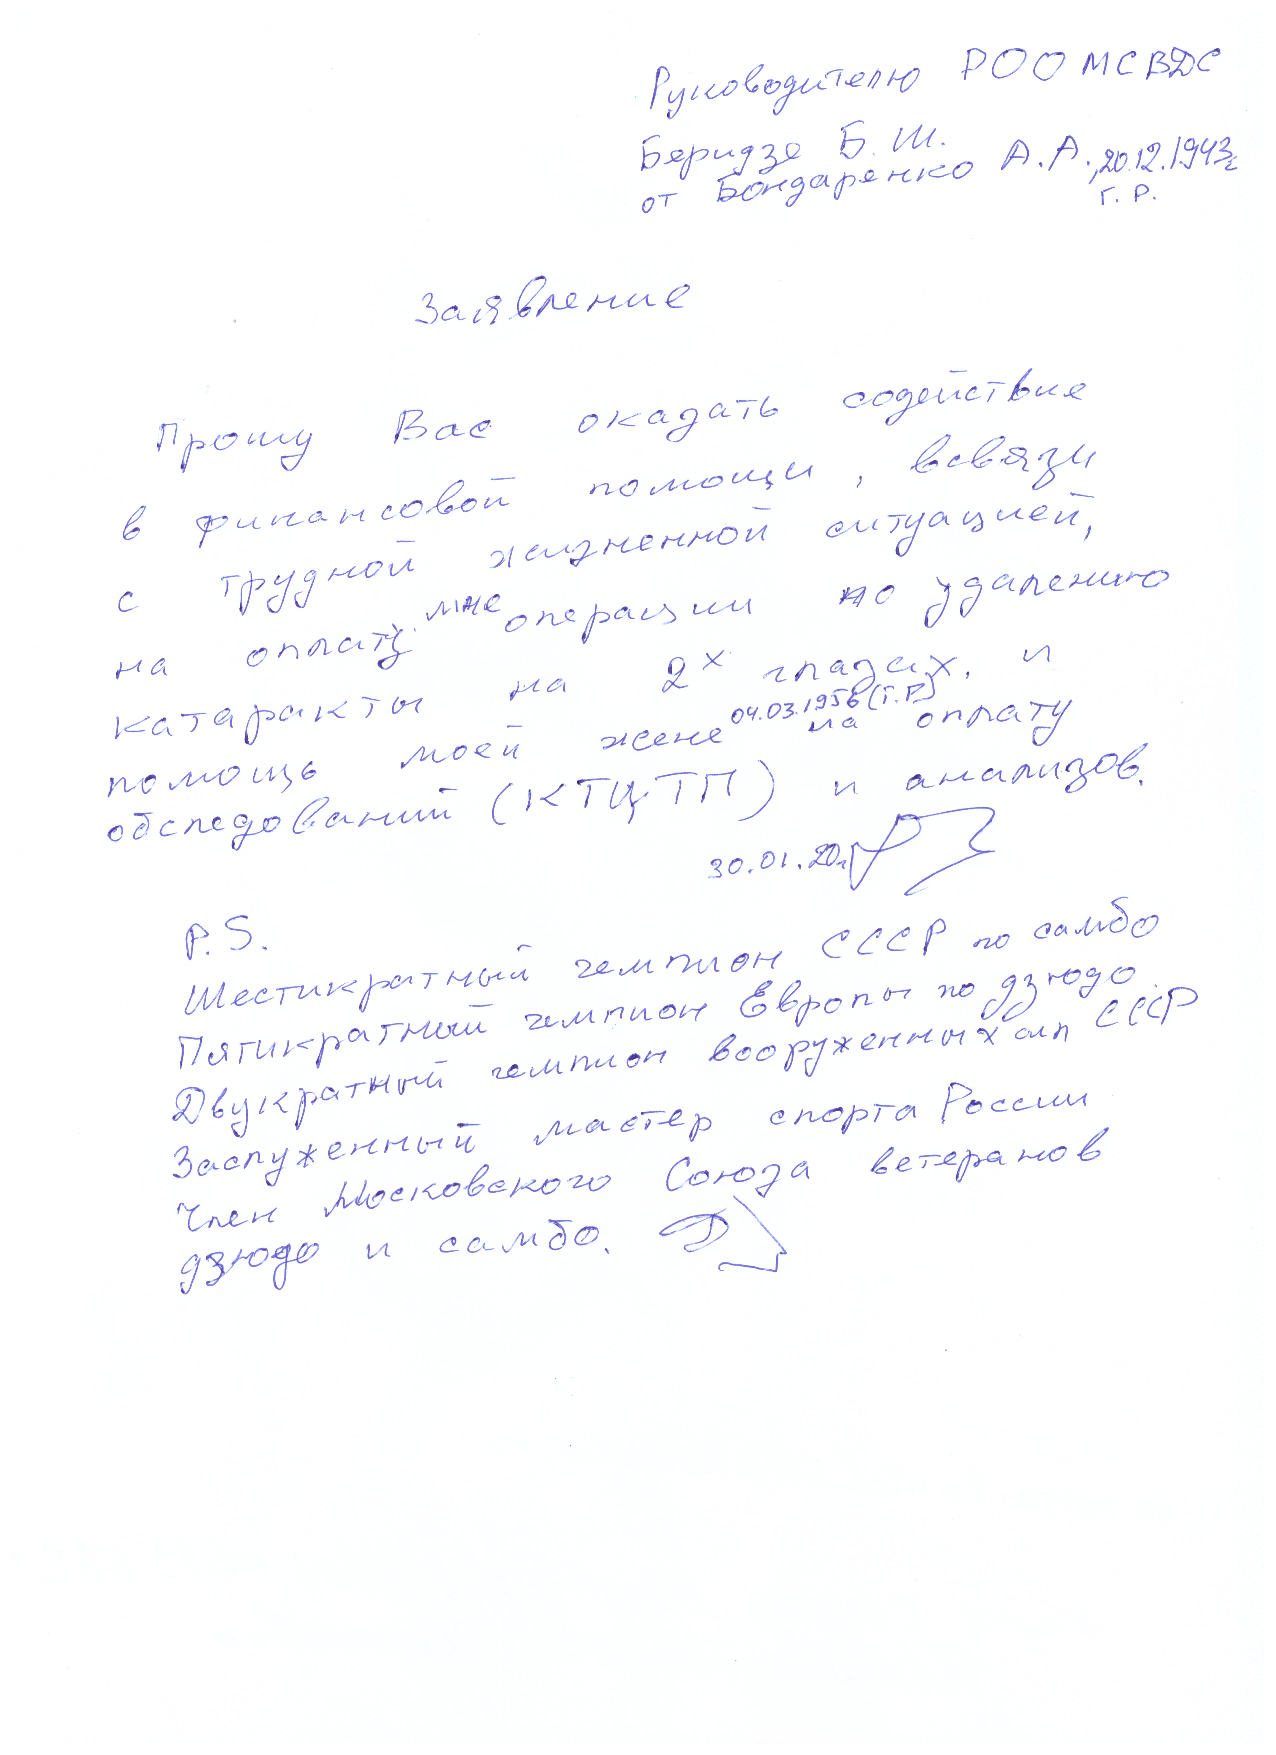 Руководителю РОО МСВДС
Беридзе Б. Ш.
от Бондаренко А.А., 20.12.1943г.
г. р.
Заявление
Прошу Вас оказать содействие
в финансовой помощи, всвязи
с трудной жизненной ситуацией,
на оплату мне операции по удалению
катаракты на 2х глазах, и
помощь моей жене 04.03.1956 (г.р) на оплату
обследований (КТЦТП) и анализов.
30.01.20г.
P.S.
Шестикратный чемпион СССР по самбо
Пятикратный чемпион Европы по дзюдо
Двукратный чемпион вооруженных сил СССР
Заслуженный мастер спорта России
Член Московского Союза ветеранов
дзюдо и самбо.